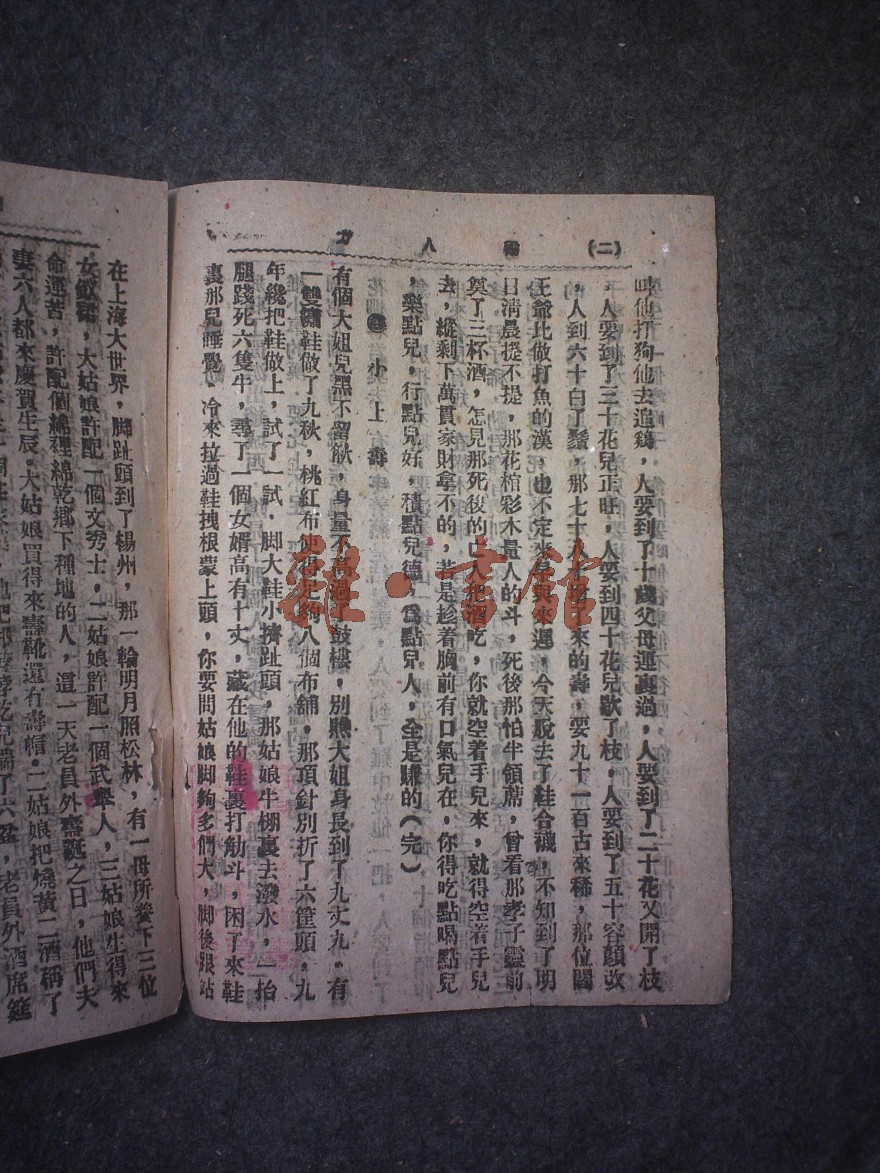 (二)
八
叫他打狗他去追鷄，人要到了十歲父母運裏過，人要到了二十花又開了枝
，人要到了三十花兒正旺，人要到四十花兒歇了枝，人要到了五十容顏改
，人到六十白了鬚，那七十八十爭來的壽，要九十一百古來稀，那位閻
王爺比做打魚的漢，也不定來早與來遲，今天脫去了鞋合襪，不知到了明
日清晨提不提，那花棺彩木量人的斗，死後那怕半領蓆，曾看那孝子靈前
奠了三杯酒，怎見那死後的亡人把酒吃，你就空着手兒來，就得空着手兒
去，縱剩下萬貫家財拿不的，若是趁着胸前有口氣兒在，你得吃點喝點兒
，樂點兒，行點兒好，積點兒德，為點兒人，全是賺的（完）
小上壽
有個大姐兒黑不留偢，身量不高過了鼓樓，別瞧大姐身長到了九丈九，有
一雙繡鞋做了九秋，桃紅布使得足夠八個布舖，那頂針別折了六筐頭，九
年纔把鞋做上，試了一試，脚大鞋小擠趾頭，那姑娘牛棚裏去潑水，一抬
腿踐死六隻牛，尋了一個女婿高有十丈，藏在他的鞋裏打觔斗，困了來鞋
裏那兒睡覺，冷來拉過鞋拽根蒙上頭，你要問姑娘脚夠多們大，脚後跟站
在上海大世界，脚趾頭到了楊州，那一輪明月照松林，有一母所養下三位
女釵裙，大姑娘許配一個文秀士，二姑娘許配一個武舉人，三姑娘生得來
命運苦，許配個綿裡綿乾鄉下種地的人，這一天老員外壽誕之日，他們夫
妻六人都來慶賀生辰，大姑娘買得來壽靴還有壽帽，二姑娘把燒黃二酒稱了
老員外酒席筵
雜·書館